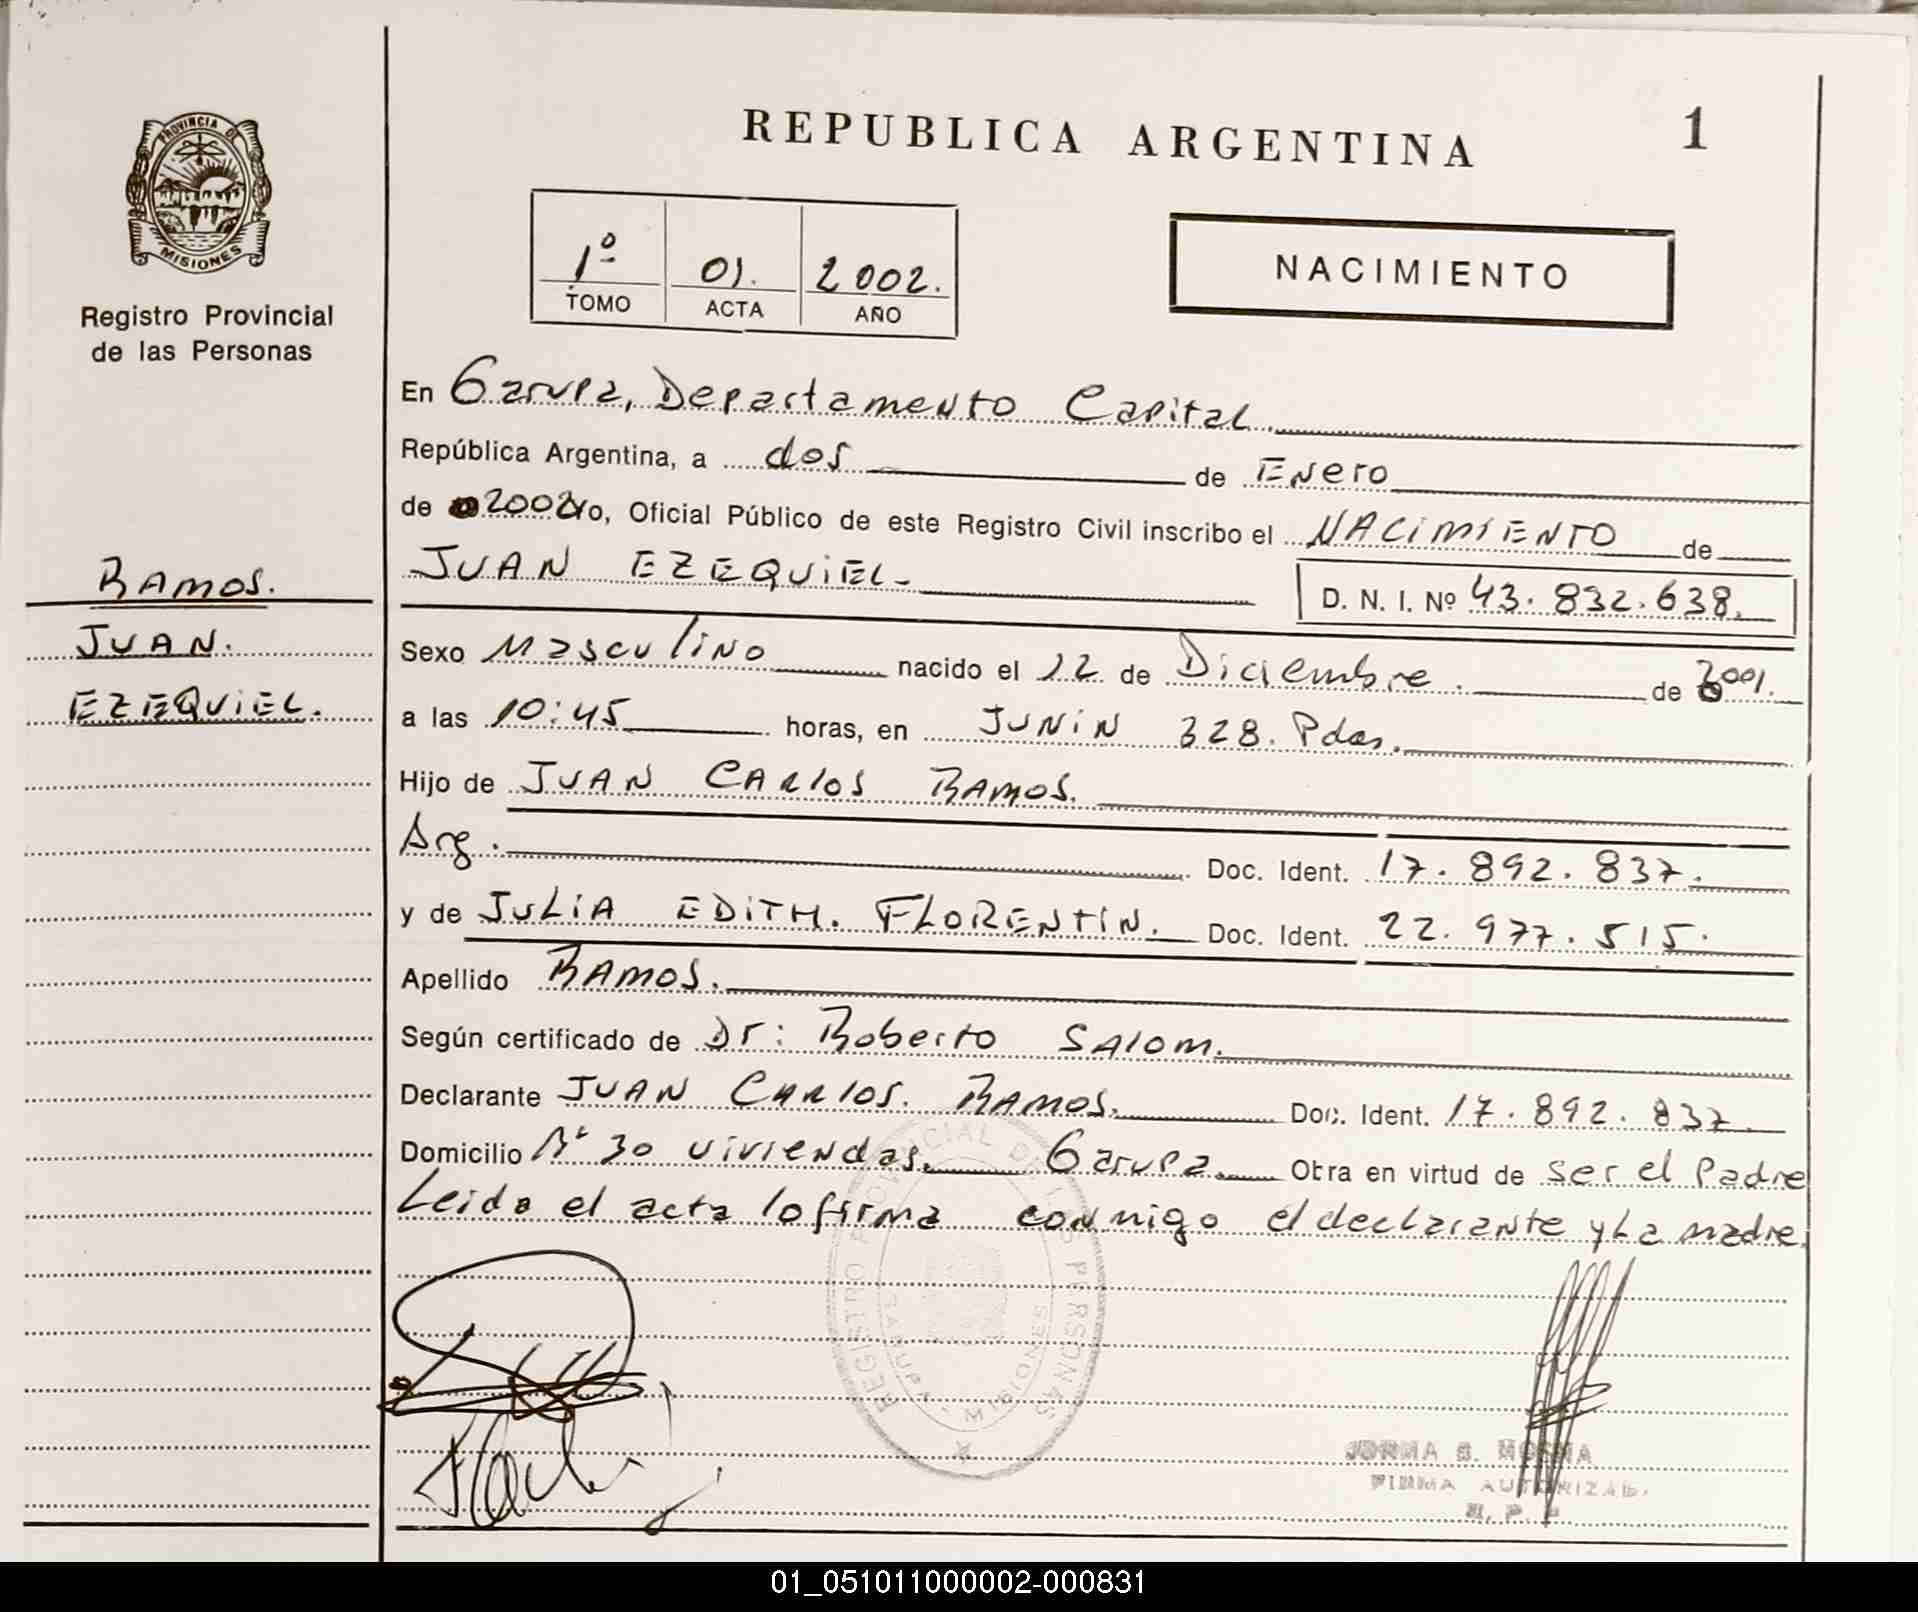 REPUBLICA ARGENTINA
1
PROVINCIA DE
MISIONES
Registro Provincial
de las Personas
1º 01. 2002.
TOMO ACTA AÑO
NACIMIENTO
En Garupa, Departamento Capital.
República Argentina, a dos de Enero
de 2002 yo, Oficial Público de este Registro Civil inscribo el NACIMIENTO de
JUAN EZEQUIEL- D. N. I. Nº 43.832.638.
RAMOS.
JUAN.
EZEQUIEL.
Sexo Masculino nacido el 12 de Diciembre. de 2001.
a las 10:45 horas, en JUNIN 328. Pdas.
Hijo de JUAN CARLOS RAMOS.
Arg. Doc. Ident. 17.892.837.
y de JULIA EDITH. FLORENTIN. Doc. Ident. 22.977.515.
Apellido RAMOS.
Según certificado de Dr: Roberto SALOM.
Declarante JUAN CARLOS. RAMOS. Doc. Ident. 17.892.837.
Domicilio Nº 30 viviendas. Garupa. Obra en virtud de ser el Padre
Leida el acta lo firma conmigo el declarante y La madre.
REGISTRO PROVINCIAL DE LAS PERSONAS
GARUPA - MISIONES
FIRMA AUTORIZAD.
01_051011000002-000831